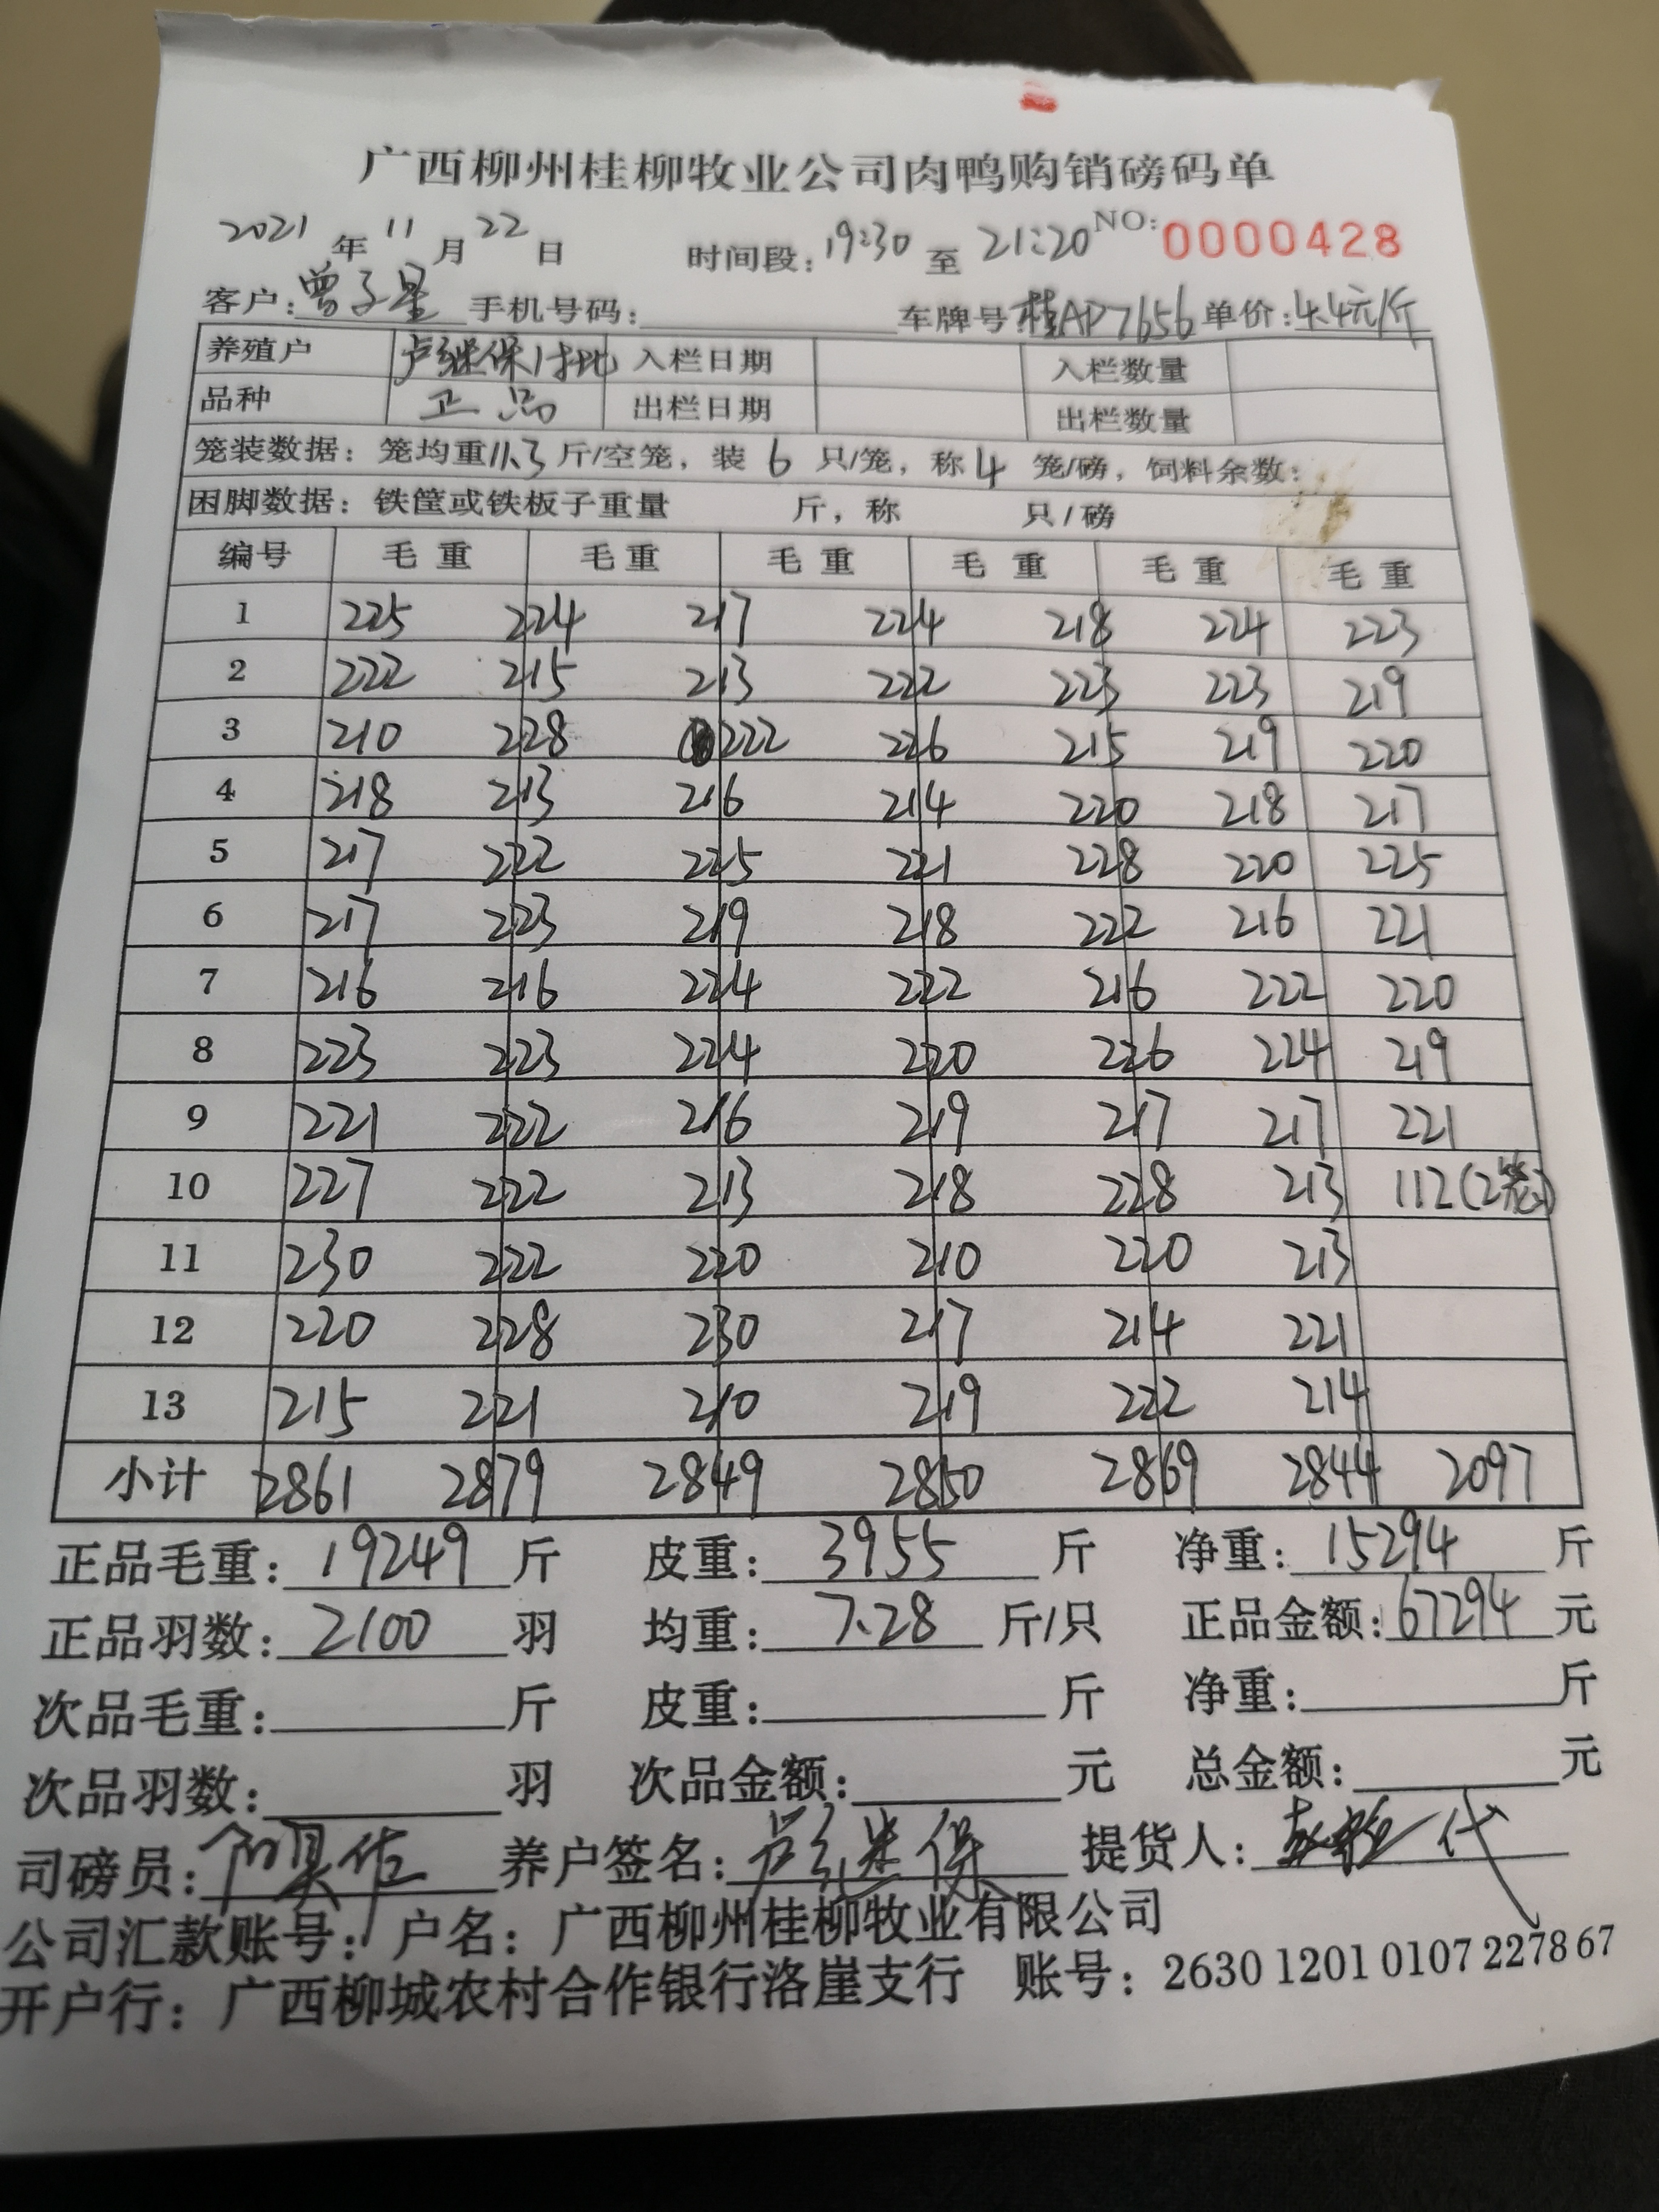 广西柳州桂柳牧业公司肉鸭购销磅码单
2021年11月22日 时间段:19:30至21:20 NO:0000428
客户:曾子星 手机号码: 车牌号:桂AP7656 单价:4.4元/斤
养殖户 卢继保1批 入栏日期 入栏数量
品种 正品 出栏日期 出栏数量
笼装数据:笼均重11.3斤/空笼,装6只/笼,称4笼/磅,饲料余数:
困脚数据:铁筐或铁板子重量 斤,称 只/磅
编号 毛重 毛重 毛重 毛重 毛重 毛重
1 225 224 217 224 218 224 223
2 222 215 213 222 223 223 219
3 210 228 222 226 215 219 220
4 218 213 216 214 220 218 217
5 217 222 225 221 228 220 225
6 217 223 219 218 222 216 221
7 216 216 224 222 216 222 220
8 223 223 224 220 226 224 219
9 221 222 216 219 217 217 221
10 227 222 213 218 228 213 112(2笼)
11 230 222 220 210 220 213
12 220 228 230 217 214 221
13 215 221 210 219 222 214
小计 2861 2879 2849 2850 2869 2844 2097
正品毛重:19249斤 皮重:3955斤 净重:15294斤
正品羽数:2100羽 均重:7.28斤/只 正品金额:67294元
次品毛重: 斤 皮重: 斤 净重: 斤
次品羽数: 羽 次品金额: 元 总金额: 元
司磅员: 养户签名:卢继保 提货人: 代
公司汇款账号:户名:广西柳州桂柳牧业有限公司
开户行:广西柳城农村合作银行洛崖支行 账号:2630 1201 0107 2278 67